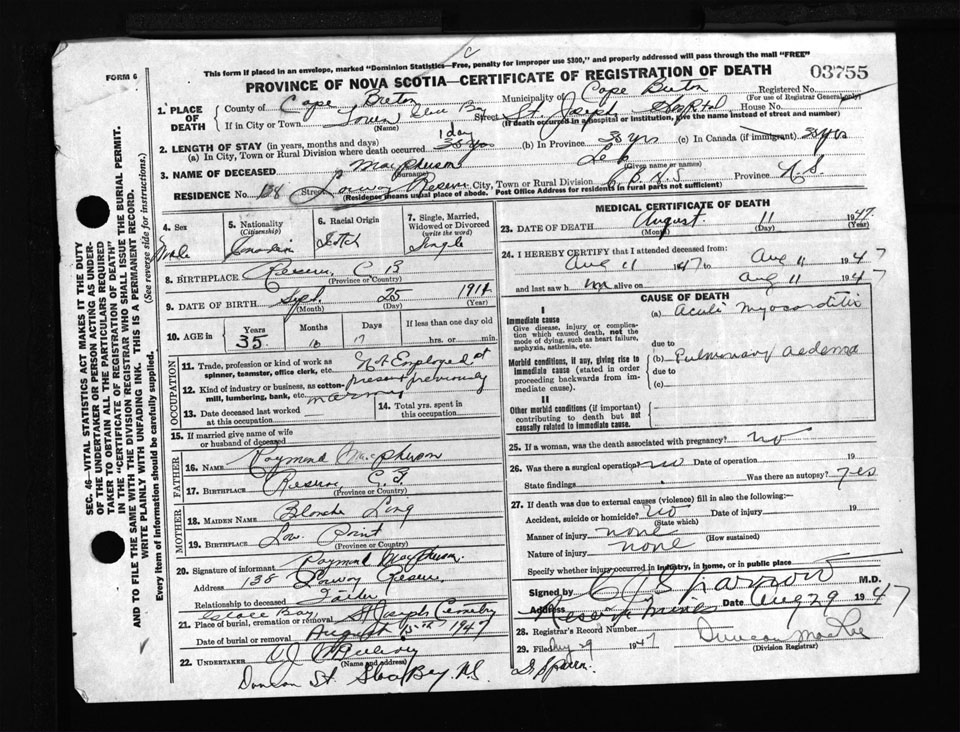 This form if placed in an envelope, marked "Dominion Statistics—Free, penalty for improper use $300," and properly addressed will pass through the mail "FREE"
FORM 6
PROVINCE OF NOVA SCOTIA—CERTIFICATE OF REGISTRATION OF DEATH
03755
1. PLACE OF DEATH
County of Cape Breton
Municipality of Cape Breton
Registered No.
(For use of Registrar General only)
If in City or Town Town Glace Bay
(Name)
Street St. Joseph Hosptal House No.
(If death occurred in a hospital or institution, give the name instead of street and number)
2. LENGTH OF STAY (in years, months and days)
1 day
(a) In City, Town or Rural Division where death occurred 35 yrs
(b) In Province 35 yrs
(c) In Canada (if immigrant) 35 yrs
3. NAME OF DECEASED MacPherson
Surname
Leo
(Given name or names)
RESIDENCE No. 138 Street Conway Reserve
City, Town or Rural Division C.B. N.S
Province N.S.
(Residence means usual place of abode. Post Office Address for residents in rural parts not sufficient)
SEC. 46—VITAL STATISTICS ACT MAKES IT THE DUTY
OF THE UNDERTAKER OR PERSON ACTING AS UNDER-
TAKER TO OBTAIN ALL THE PARTICULARS REQUIRED
IN THE "CERTIFICATE OF REGISTRATION OF DEATH"
AND TO FILE THE SAME WITH THE DIVISION REGISTRAR WHO SHALL ISSUE THE BURIAL PERMIT.
WRITE PLAINLY WITH UNFADING INK. THIS IS A PERMANENT RECORD.
Every item of information should be carefully supplied. (See reverse side for instructions.)
4. Sex
Male
5. Nationality
(Citizenship)
Canadian
6. Racial Origin
Scotch
7. Single, Married, Widowed or Divorced
(write the word)
Single
8. BIRTHPLACE Reserve, C B
(Province or Country)
9. DATE OF BIRTH Sept. 25 1914
(Month) (Day) (Year)
10. AGE in
Years Months Days If less than one day old
35 10 17 hrs. or min.
OCCUPATION
11. Trade, profession or kind of work as spinner, teamster, office clerk, etc. Not Employed at
12. Kind of industry or business, as cotton-mill, lumbering, bank, etc. present previously
13. Date deceased last worked at this occupation
14. Total yrs. spent in this occupation
15. If married give name of wife or husband of deceased
FATHER
16. NAME Raymond MacPherson
17. BIRTHPLACE Reserve, C.B.
(Province or Country)
MOTHER
18. MAIDEN NAME Blanche Ling
19. BIRTHPLACE Low Point
(Province or Country)
20. Signature of informant Raymond MacPherson
Address 138 Conway Reserve
Relationship to deceased Father
21. Place of burial, cremation or removal Glace Bay, St Josephs Cemetery
Date of burial or removal August 15th 1947
22. UNDERTAKER
(Name and address)
St. Glace Bay N.S.
MEDICAL CERTIFICATE OF DEATH
23. DATE OF DEATH August 11 1947.
(Month) (Day) (Year)
24. I HEREBY CERTIFY that I attended deceased from:
Aug 11 1947 to Aug 11 1947
and last saw h im alive on Aug 11 1947
CAUSE OF DEATH
I
Immediate cause
Give disease, injury or complication which caused death, not the mode of dying, such as heart failure, asphyxia, asthenia, etc.
Morbid conditions, if any, giving rise to immediate cause (stated in order proceeding backwards from immediate cause).
II
Other morbid conditions (if important) contributing to death but not causally related to immediate cause.
(a) Acute Myocarditis
due to
(b) Pulmonary aedema
due to
(c)
25. If a woman, was the death associated with pregnancy? no
26. Was there a surgical operation no Date of operation 19
State findings Was there an autopsy? yes
27. If death was due to external causes (violence) fill in also the following:—
Accident, suicide or homicide? no Date of injury 19
(State which)
Manner of injury none (How sustained)
Nature of injury none
Specify whether injury occurred in industry, in home, or in public place
Signed by C Sparrow M.D.
Address Reserve Mines Date Aug 29 1947
28. Registrar's Record Number
29. Filed Aug 29 1947
Duncan MacRae
(Division Registrar)